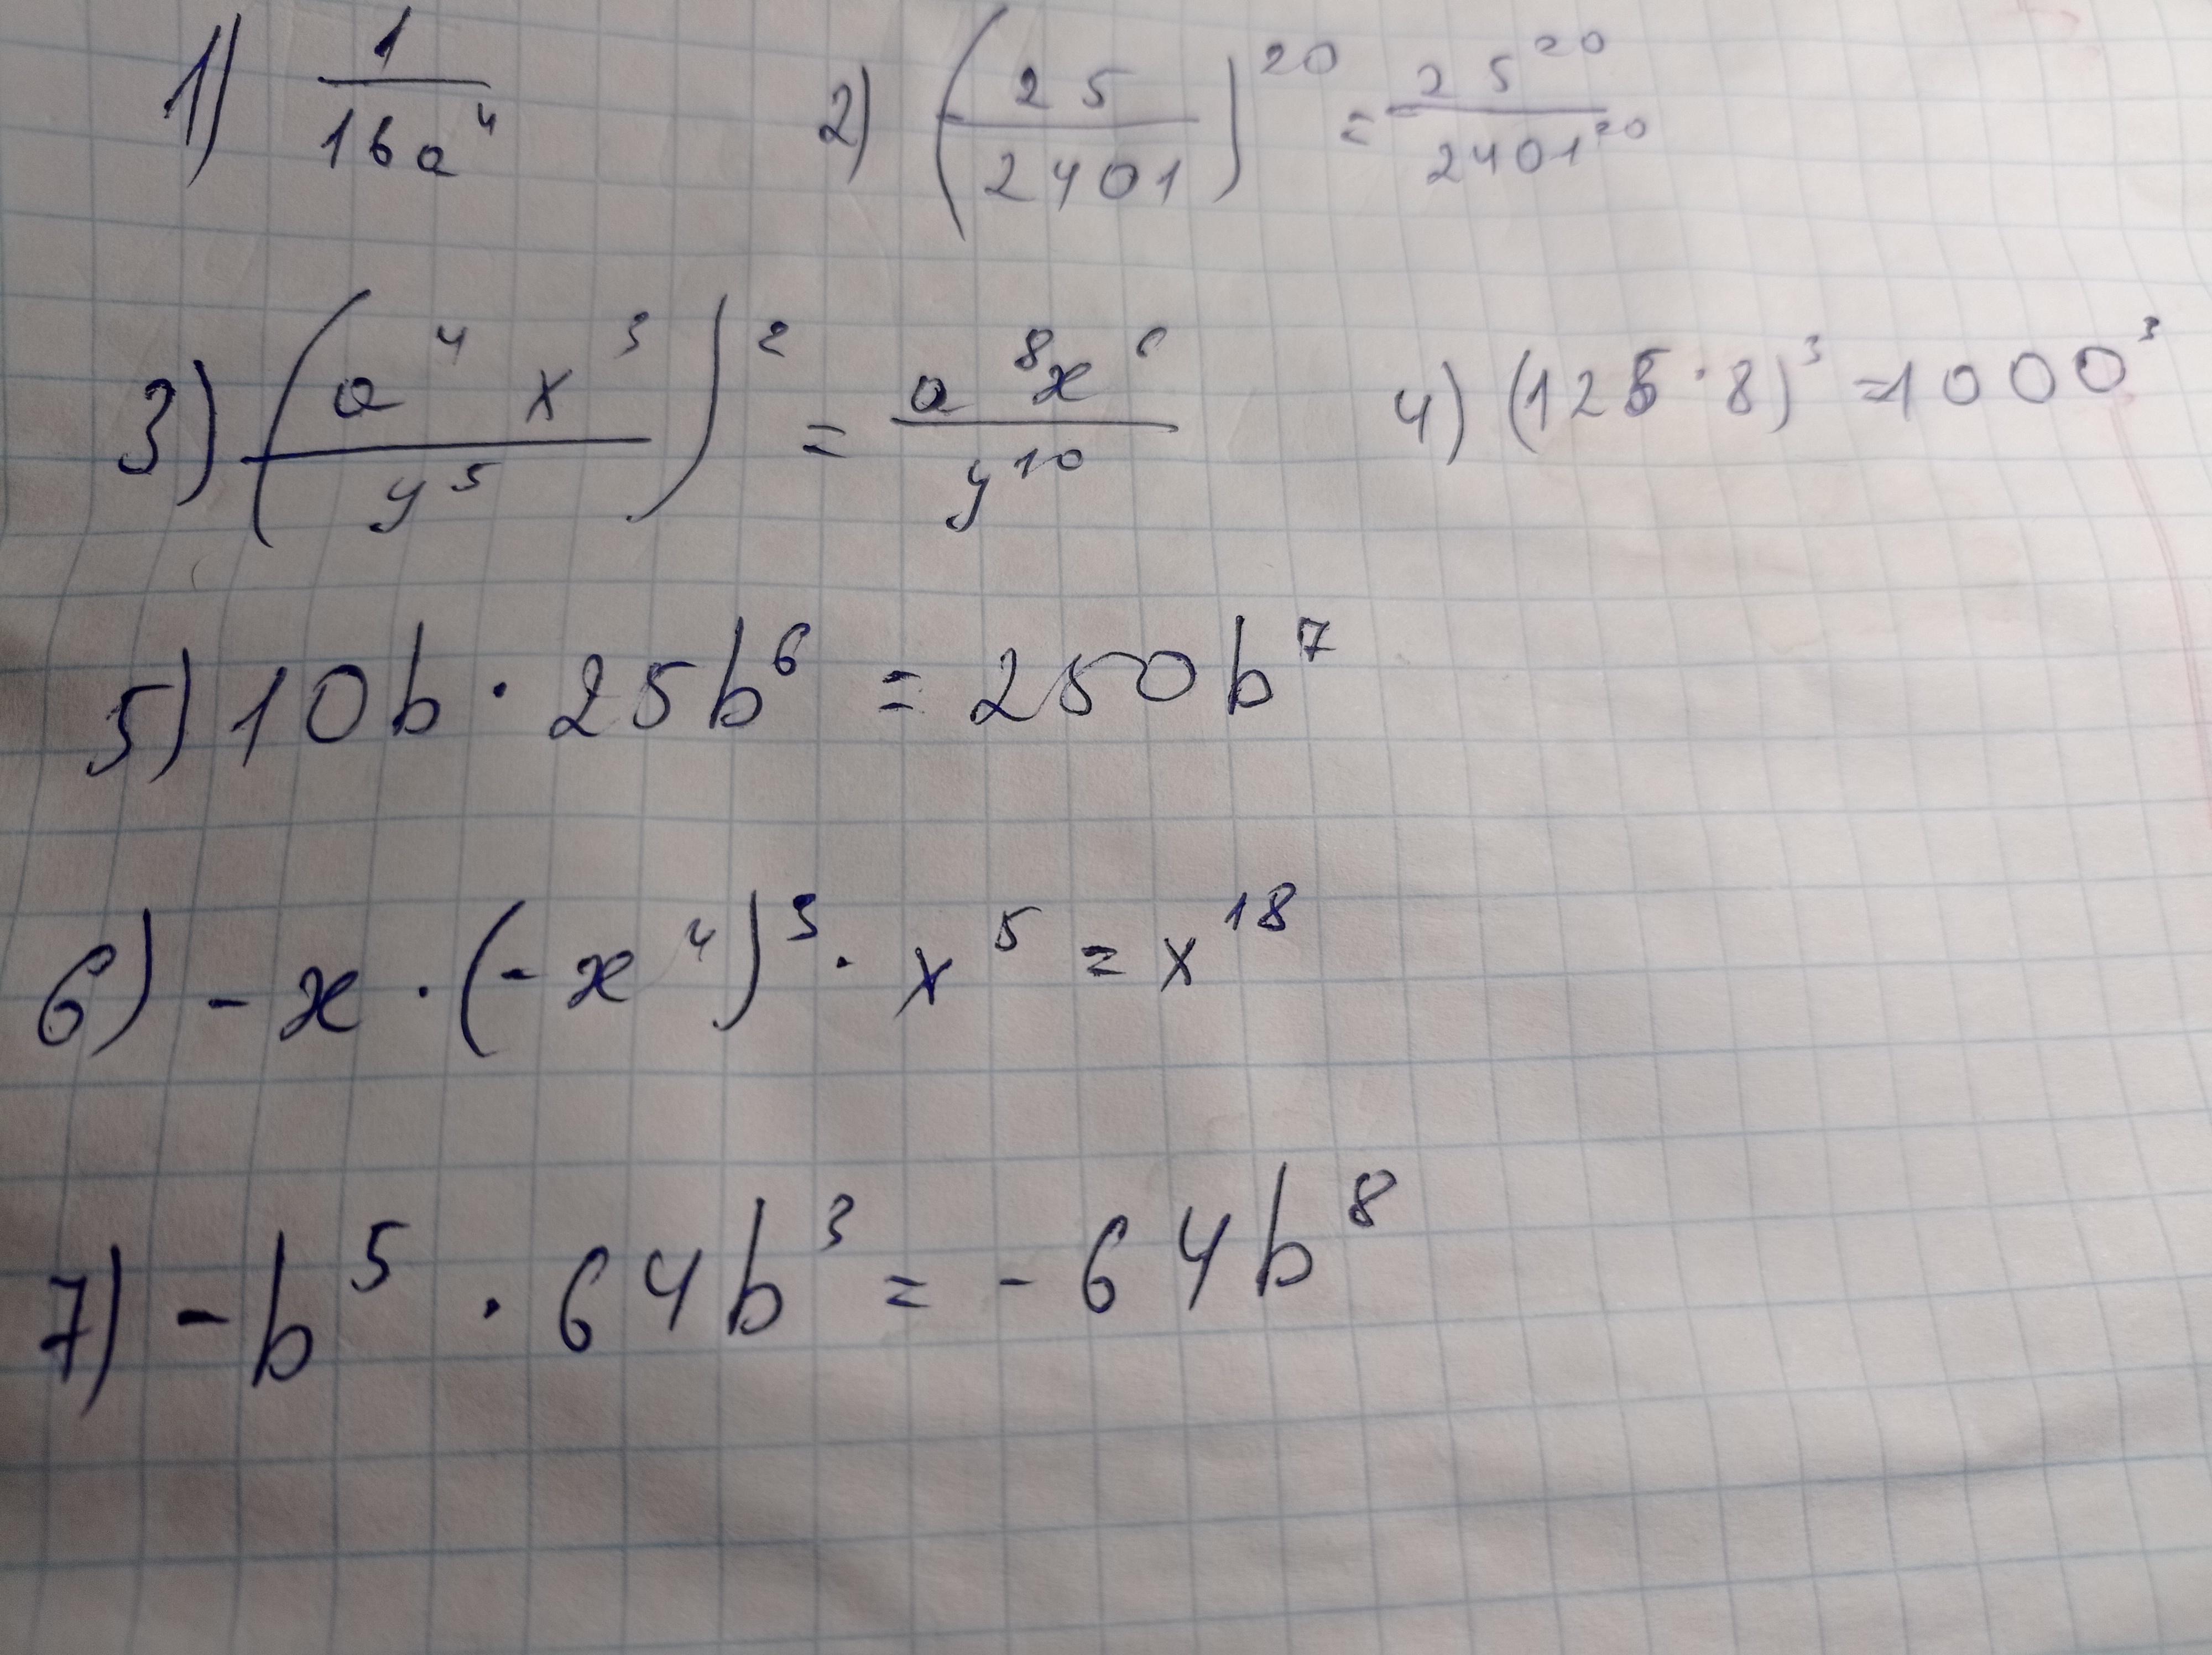 1) 1/16a⁴ 2) (25/2401)²⁰ = 25²⁰/2401²⁰
3) (a⁴x³/y⁵)² = a⁸x⁶/y¹⁰ 4) (125·8)³ = 1000³
5) 10b · 25b⁶ = 250b⁷
6) -x · (-x⁴)³ · x⁵ = x¹⁸
7) -b⁵ · 64b³ = -64b⁸